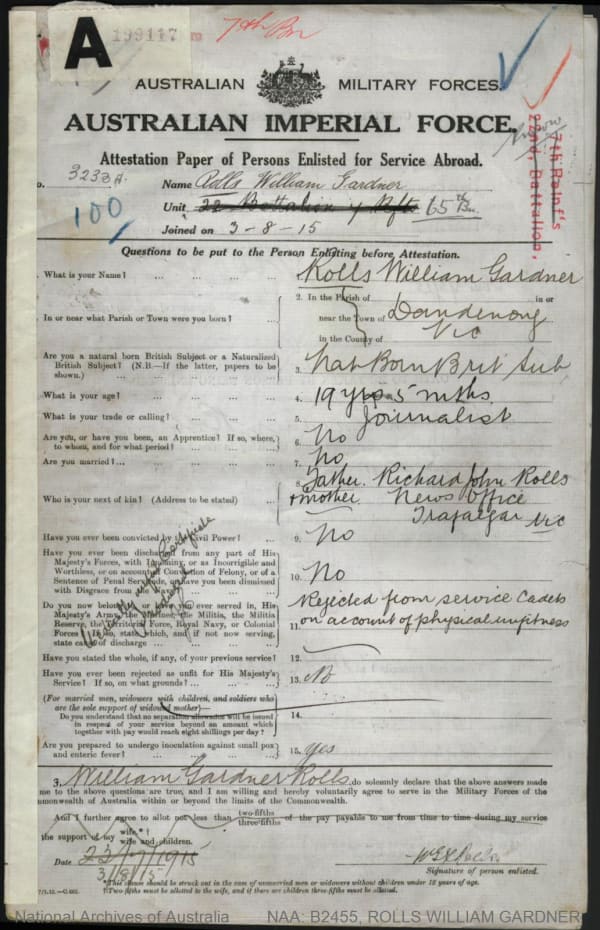 A
199117
7th Bn
AUSTRALIAN MILITARY FORCES.
AUSTRALIAN IMPERIAL FORCE.
Attestation Paper of Persons Enlisted for Service Abroad.
7th Reinf'ts
22nd. Battalion.
o. 3233A. Name Rolls William Gardner
100
Unit 22 Battalion 7 Rfts 65th Bn.
Joined on 3-8-15
Questions to be put to the Person Enlisting before Attestation.
What is your Name? ... ... ... ... Rolls William Gardner
In or near what Parish or Town were you born? ...
2. In the Parish of in or
near the Town of Dandenong
in the County of Vic
Are you a natural born British Subject or a Naturalized
British Subject? (N.B.—If the latter, papers to be
shown.) ... ... ... ... 3. Nat Born Brit Sub
What is your age? ... ... ... ... 4. 19 yrs 5 mths.
What is your trade or calling? ... ... ... 5. Journalist
Are you, or have you been, an Apprentice? If so, where,
to whom, and for what period? ... ... ... 6. No
Are you married?... ... ... ... 7. No
Who is your next of kin? (Address to be stated) ...
8. Father. Richard John Rolls
+ mother. News Office
Trafalgar Vic
Have you ever been convicted by the Civil Power? ... 9. No
Have you ever been discharged from any part of His
Majesty's Forces, with Ignominy, or as Incorrigible and
Worthless, or on account of Conviction of Felony, or of a
Sentence of Penal Servitude, or have you been dismissed
with Disgrace from the Navy? 10. No
Do you now belong to, or have you ever served in, His
Majesty's Army, the Marines, the Militia, the Militia
Reserve, the Territorial Force, Royal Navy, or Colonial
Forces? If so, state which, and if not now serving,
state cause of discharge ...
11. Rejected from service Cadets
on account of physical unfitness
Have you stated the whole, if any, of your previous service? 12.
Have you ever been rejected as unfit for His Majesty's
Service? If so, on what grounds? ... ... 13. No
(For married men, widowers with children, and soldiers who
are the sole support of widowed mother)—
Do you understand that no separation allowance will be issued
in respect of your service beyond an amount which
together with pay would reach eight shillings per day? 14.
Are you prepared to undergo inoculation against small pox
and enteric fever? ... ... ... ... 15. yes
3. William Gardner Rolls. do solemnly declare that the above answers made
me to the above questions are true, and I am willing and hereby voluntarily agree to serve in the Military Forces of the
monwealth of Australia within or beyond the limits of the Commonwealth.
And I further agree to allot not less than two-fifths three-fifths of the pay payable to me from time to time during my service
the support of my wife.*† wife and children.
Date 23/7/1915
3/8/15
Signature of person enlisted.
*This clause should be struck out in the case of unmarried men or widowers without children under 18 years of age.
†Two-fifths must be allotted to the wife, and if there are children three-fifths must be allotted.
National Archives of Australia NAA: B2455, ROLLS WILLIAM GARDNER